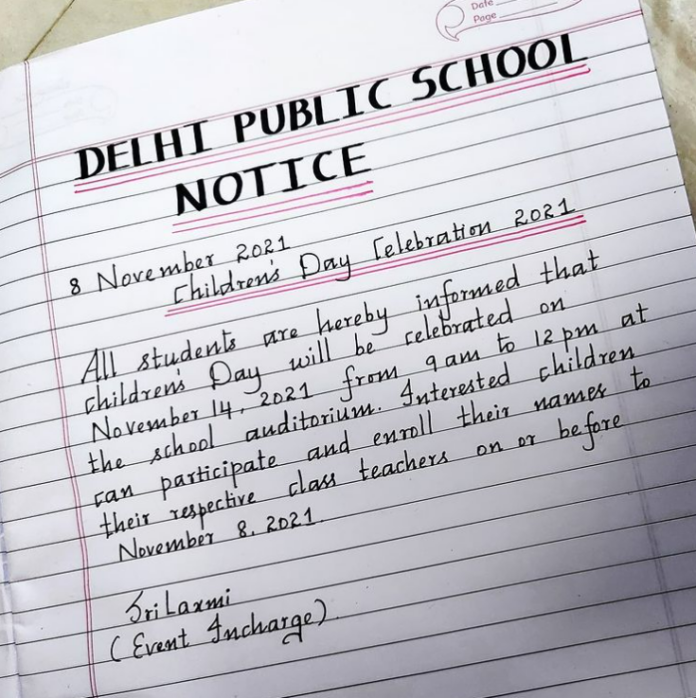 Date
Page
DELHI PUBLIC SCHOOL
NOTICE
8 November 2021
Children's Day Celebration 2021
All students are hereby informed that
Children's Day will be celebrated on
November 14, 2021 from 9 am to 12 pm at
the school auditorium. Interested children
can participate and enroll their names to
their respective class teachers on or before
November 8, 2021.
SriLaxmi
(Event Incharge)